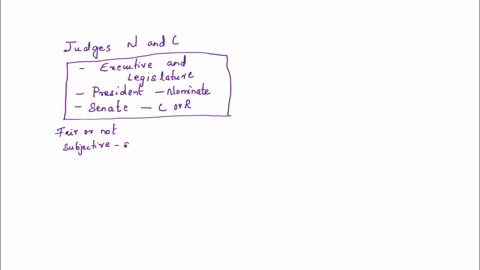 Judges N and C
- Executive and
Legislature
- President - Nominate
- Senate - C or R
Fair or not
Subjective -